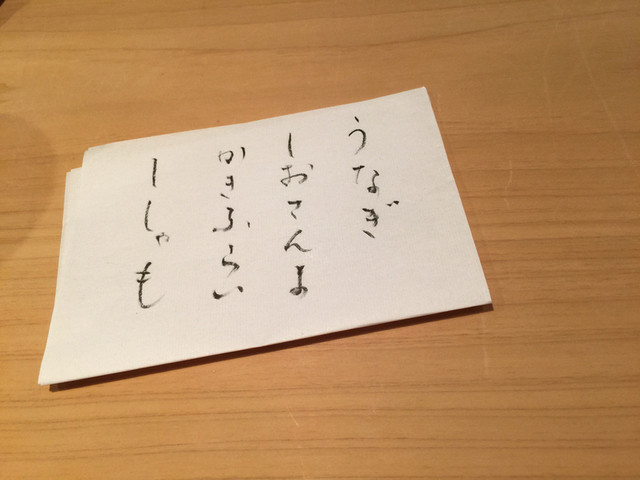 うなぎ
しおさんま
かきふらい
ししゃも